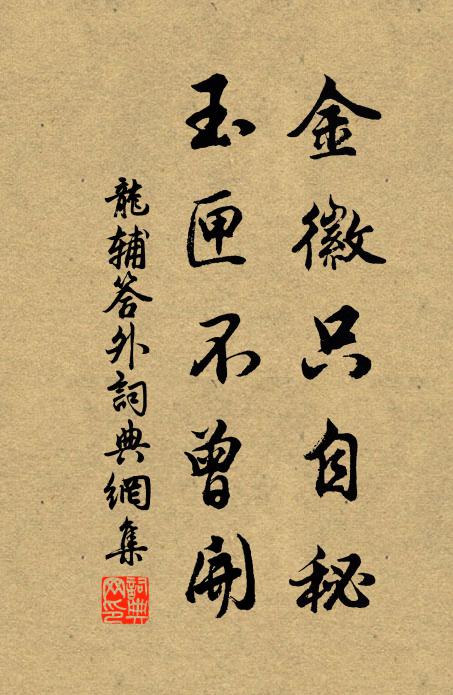 金徽只自秘
玉匣不曾開
龍辅答外詞典網集
詞典網印